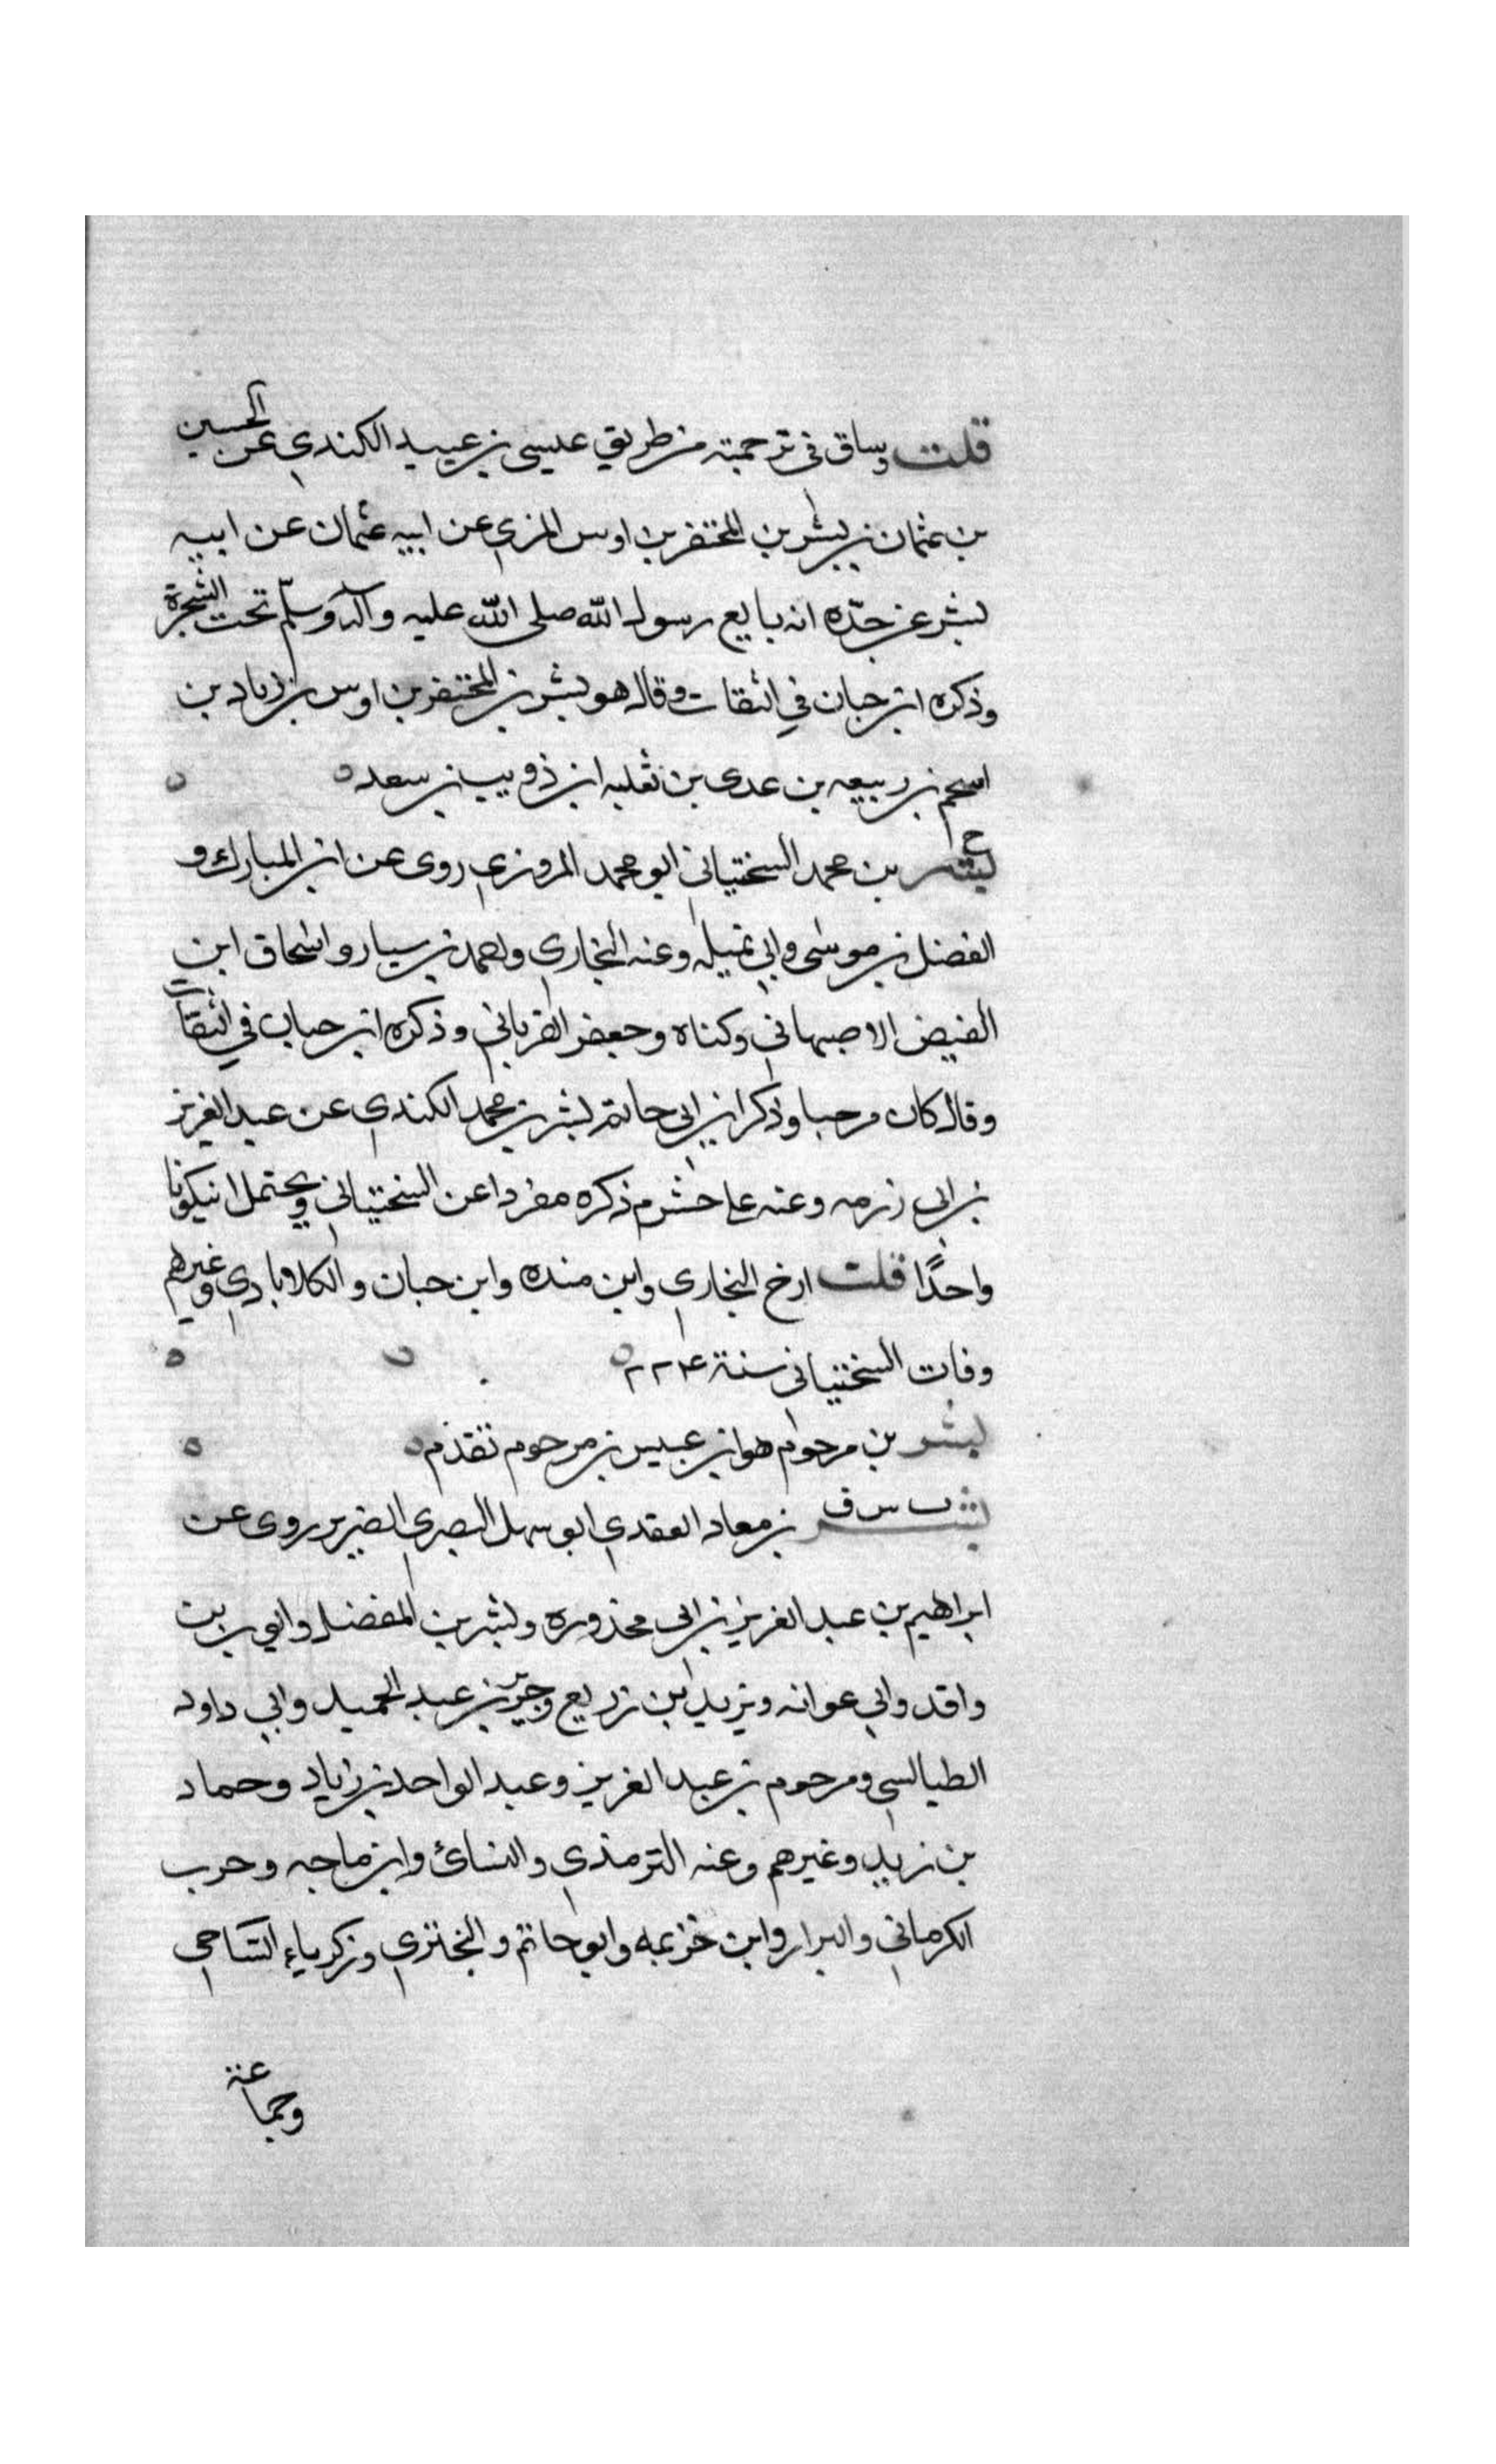 قلت وساق في ترجمته من طريق عيسى بن عبيد الكندي عن الحسين
بن عثمان بن بشر بن المحتفر بن اوس المزي عن ابيه عثمان عن ابيه
بشر عن جدّه انه بايع رسول الله صلى الله عليه وآله وسلّم تحت الشجرة
وذكره ابن حبان في الثقات وقال هو بشر بن المحتفر بن اوس بن زياد بن
اسحم بن ربيعه بن عدى بن ثعلبه ابن ذويب بن سعد
خ
بشر بن محمد السختياني ابو محمد المروزي روى عن ابن المبارك و
الفضل بن موسى وابي تميله وعنه البخاري واحمد بن سيار واسحاق ابن
الفيض الاصبهاني وكناه وجعفر الفرياني وذكره ابن حبان في الثقات
وقال كان مرجيا وذكر ابن ابي حاتم بشر بن محمد الكندي عن عبد العزيز
بن ابي رزمه وعنه علي خشرم ذكره مفردا عن السختياني ويحتمل ان يكونا
واحدًا قلت ارخ البخاري وابن منده وابن حبان والكلاباذي وغيرهم
وفات السختياني سنة ٢٢٤
بشر بن مرحوم هو ابن عبيس بن مرحوم تقدم
ت س ق
بشر بن معاد العقدي ابو سهل البصري الضرير روى عن
ابراهيم بن عبد العزيز بن ابي محذوره وبشر بن المفضل وايوب بن
واقد وابي عوانه ويزيد ابن زريع وجرير بن عبد الحميد وابي داود
الطيالسي ومرحوم بن عبد العزيز وعبد الواحد بن زياد وحماد
بن زيد وغيرهم وعنه الترمذي والنسائ وابن ماجه وحرب
الكرماني والبزار وابن خزيمه وابو حاتم والبختري وزكرياء الساجي
وجماعة